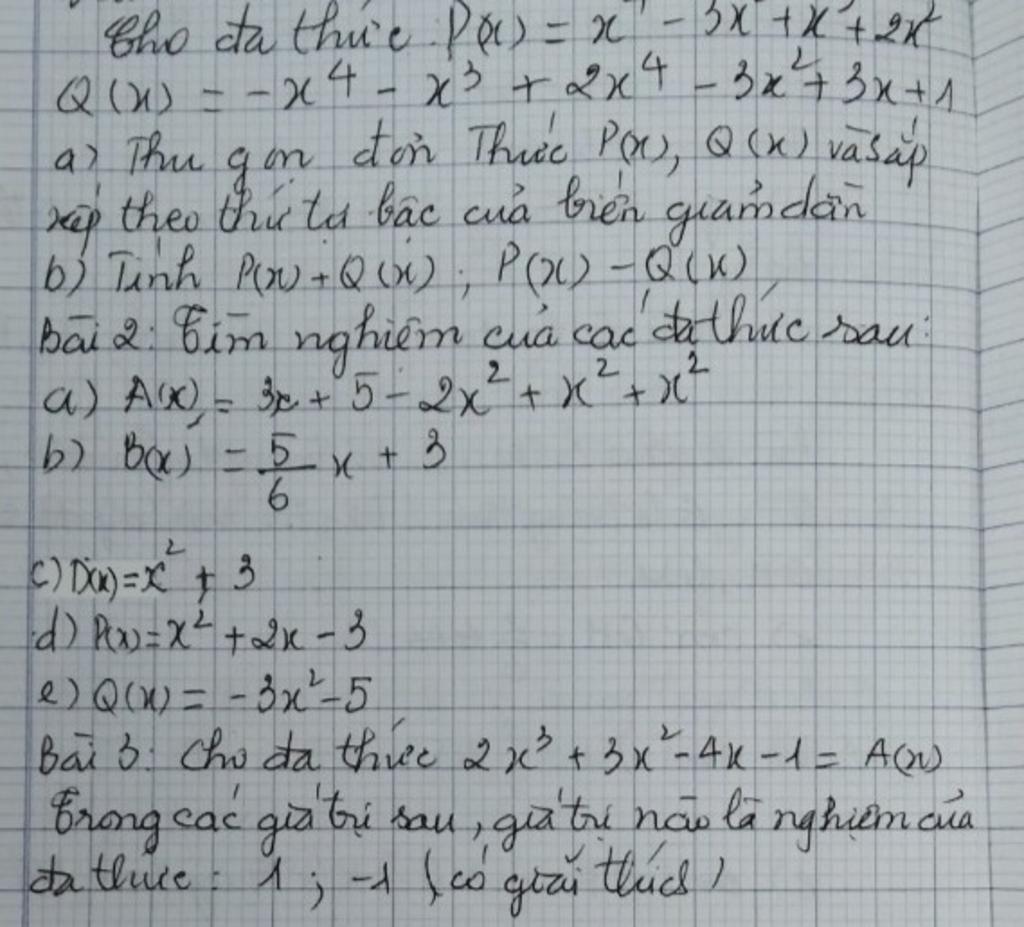 Cho đa thức P(x) = x - 3x + x + 2x²
Q(x) = -x⁴ - x³ + 2x⁴ - 3x² + 3x + 1
a) Thu gọn đơn Thức P(x), Q(x) và sắp
xếp theo thứ tự bậc của biến giảm dần
b) Tính P(x) + Q(x); P(x) - Q(x)
Bài 2: Tìm nghiệm của các đa thức sau:
a) A(x) = 3x + 5 - 2x² + x² + x²
b) B(x) = 5/6 x + 3
c) D(x) = x² + 3
d) P(x) = x² + 2x - 3
e) Q(x) = -3x² - 5
Bài 3: Cho đa thức 2x³ + 3x² - 4x - 1 = A(x)
Trong các giá trị sau, giá trị nào là nghiệm của
đa thức: 1; -1 (có giải thích)